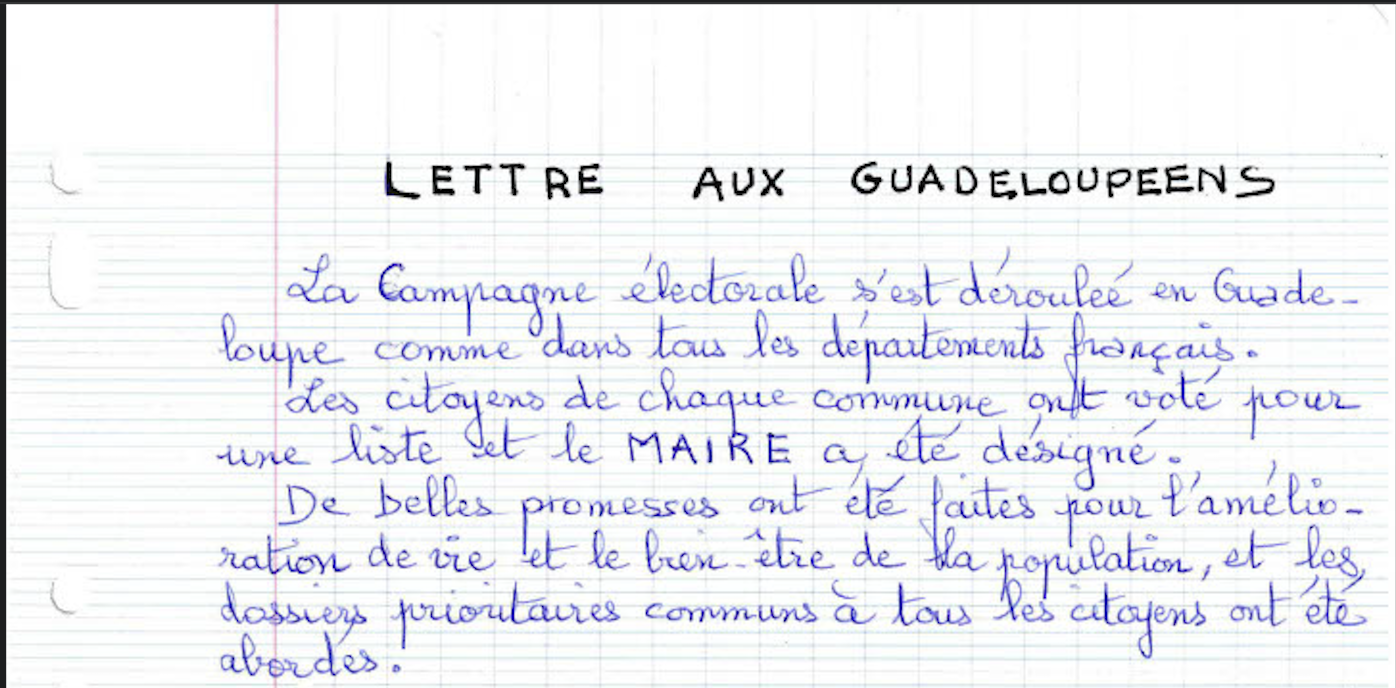 LETTRE AUX GUADELOUPEENS
La Campagne électorale s'est déroulée en Guade-
loupe comme dans tous les départements français.
Les citoyens de chaque commune ont voté pour
une liste et le MAIRE a été désigné.
De belles promesses ont été faites pour l'amélio-
ration de vie et le bien-être de la population, et les
dossiers prioritaires communs à tous les citoyens ont été
abordés.